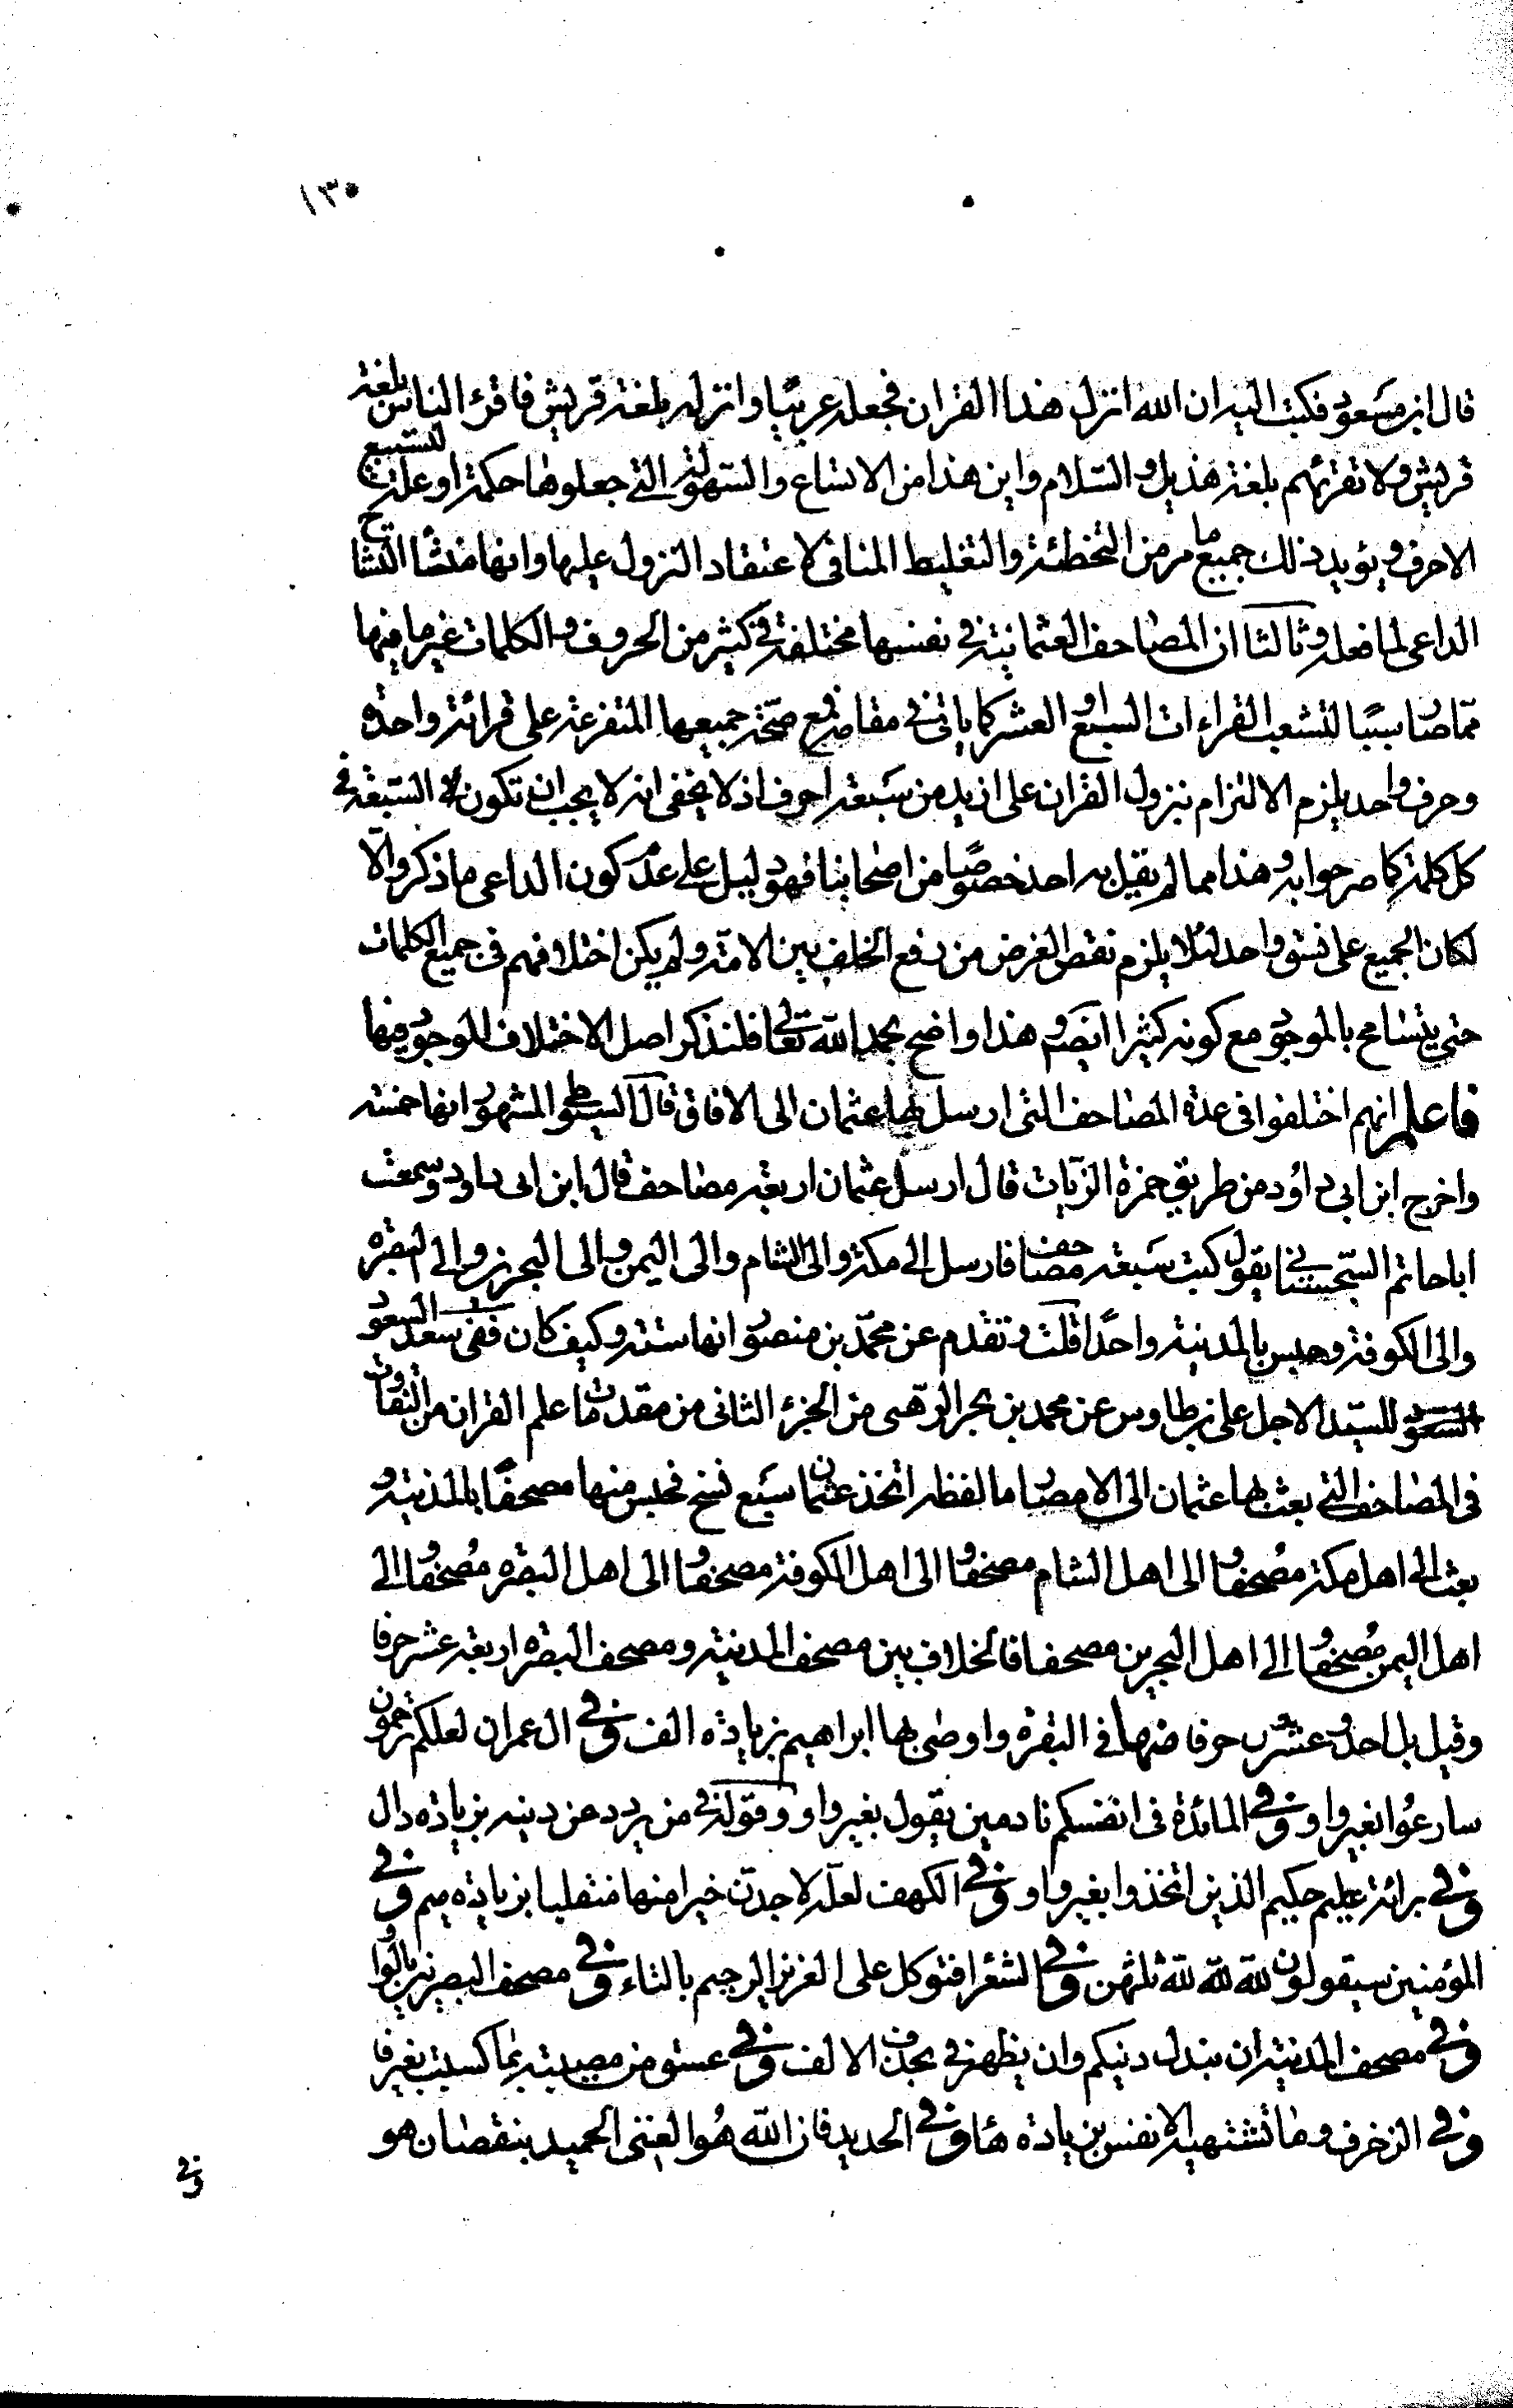 ١٣٠
قال ابن مسعود فكتب اليه ان الله انزل هذا القران فجعله عربيا وانزله بلغة قريش فاقرء الناس بلغة
قريش ولا تقرئهم بلغة هذيل والسلام واين هذا من الاتساع والسهولة التي جعلوها حكمة او علة لتسبيع
الاحرف ويؤيد ذلك جميع ما مر من التخطئة والتغليط المنافي لاعتقاد النزول عليها وانها منشأ التشاح
الداعي لما فعله وثالثا ان المصاحف العثمانية في نفسها مختلفة في كثير من الحروف والكلمات غير ما فيها
مما صار سببا لتشعب القراءات السبع او العشر كما ياتي في مقامه ومع صحة جميعها المتفرعة على قرائة واحدة
وحرف واحد يلزم الالتزام بنزول القران على ازيد من سبعة احرف اذ لا يخفى انه لا يجب ان تكون السبعة في
كل كلمة كما صرحوا به وهذا مما لم يقل به احد خصوصا من اصحابنا فهو دليل على عدم كون الداعي ما ذكر والا
لكان الجميع على نسق واحد لئلا يلزم نقض الغرض من رفع الخلف بين الامة ولم يكن اختلافهم في جميع الكلمات
حتى يتسامح بالموجود مع كونه كثيرا ايضا وهذا واضح بحمد الله تعالى فلنذكر اصل الاختلاف الموجود فيها
فاعلم انهم اختلفوا في عدة المصاحف التي ارسل بها عثمان الى الافاق قال السيوطي المشهور انها خمسة
واخرج ابن ابي داود من طريق حمزة الزيات قال ارسل عثمان اربعة مصاحف قال ابن ابي داود وسمعت
ابا حاتم السجستاني يقول كتب سبعة مصاحف فارسل الى مكة والى الشام والى اليمن والى البحرين والى البصرة
والى الكوفة وحبس بالمدينة واحدا قلت وتقدم عن محمد بن منصور انها ستة وكيف كان ففي سعد السعود
للسيد الاجل علي بن طاوس عن محمد بن بحر الرهني من الجزء الثاني من مقدمات علم القران من التفاوت
في المصاحف التي بعث بها عثمان الى الامصار ما لفظه اتخذ عثمان سبع نسخ فحبس منها مصحفا بالمدينة و
بعث الى اهل مكة مصحفا والى اهل الشام مصحفا والى اهل الكوفة مصحفا والى اهل البصرة مصحفا والى
اهل اليمن مصحفا والى اهل البحرين مصحفا فالخلاف بين مصحف المدينة ومصحف البصرة اربعة عشر حرفا
وقيل بل احد وعشرون حرفا منها في البقرة واوصى بها ابراهيم بزيادة الف وفي ال عمران لعلكم ترحمون
سارعوا بغير واو وفي المائدة في انفسكم نادمين يقول بغير واو وقوله في من يردد عن دينه بزيادة دال
وفي برائة عليم حكيم الذين اتخذوا بغير واو وفي الكهف لعله لاجدن خيرا منها منقلبا بزيادة ميم وفي
المؤمنين سيقولون لله لله لله ثلثهن وفي الشعرا فتوكل على العزيز الرحيم بالفاء وفي مصحف البصريين بالواو
وفي مصحف المدينة ان يبدل دينكم وان يظهر في بحذف الالف وفي عسق من مصيبة بما كسبت بغير فا
وفي الزخرف وما تشتهيه الانفس بزيادة ها وفي الحديد فان الله هو الغني الحميد بنقصان هو
وفي